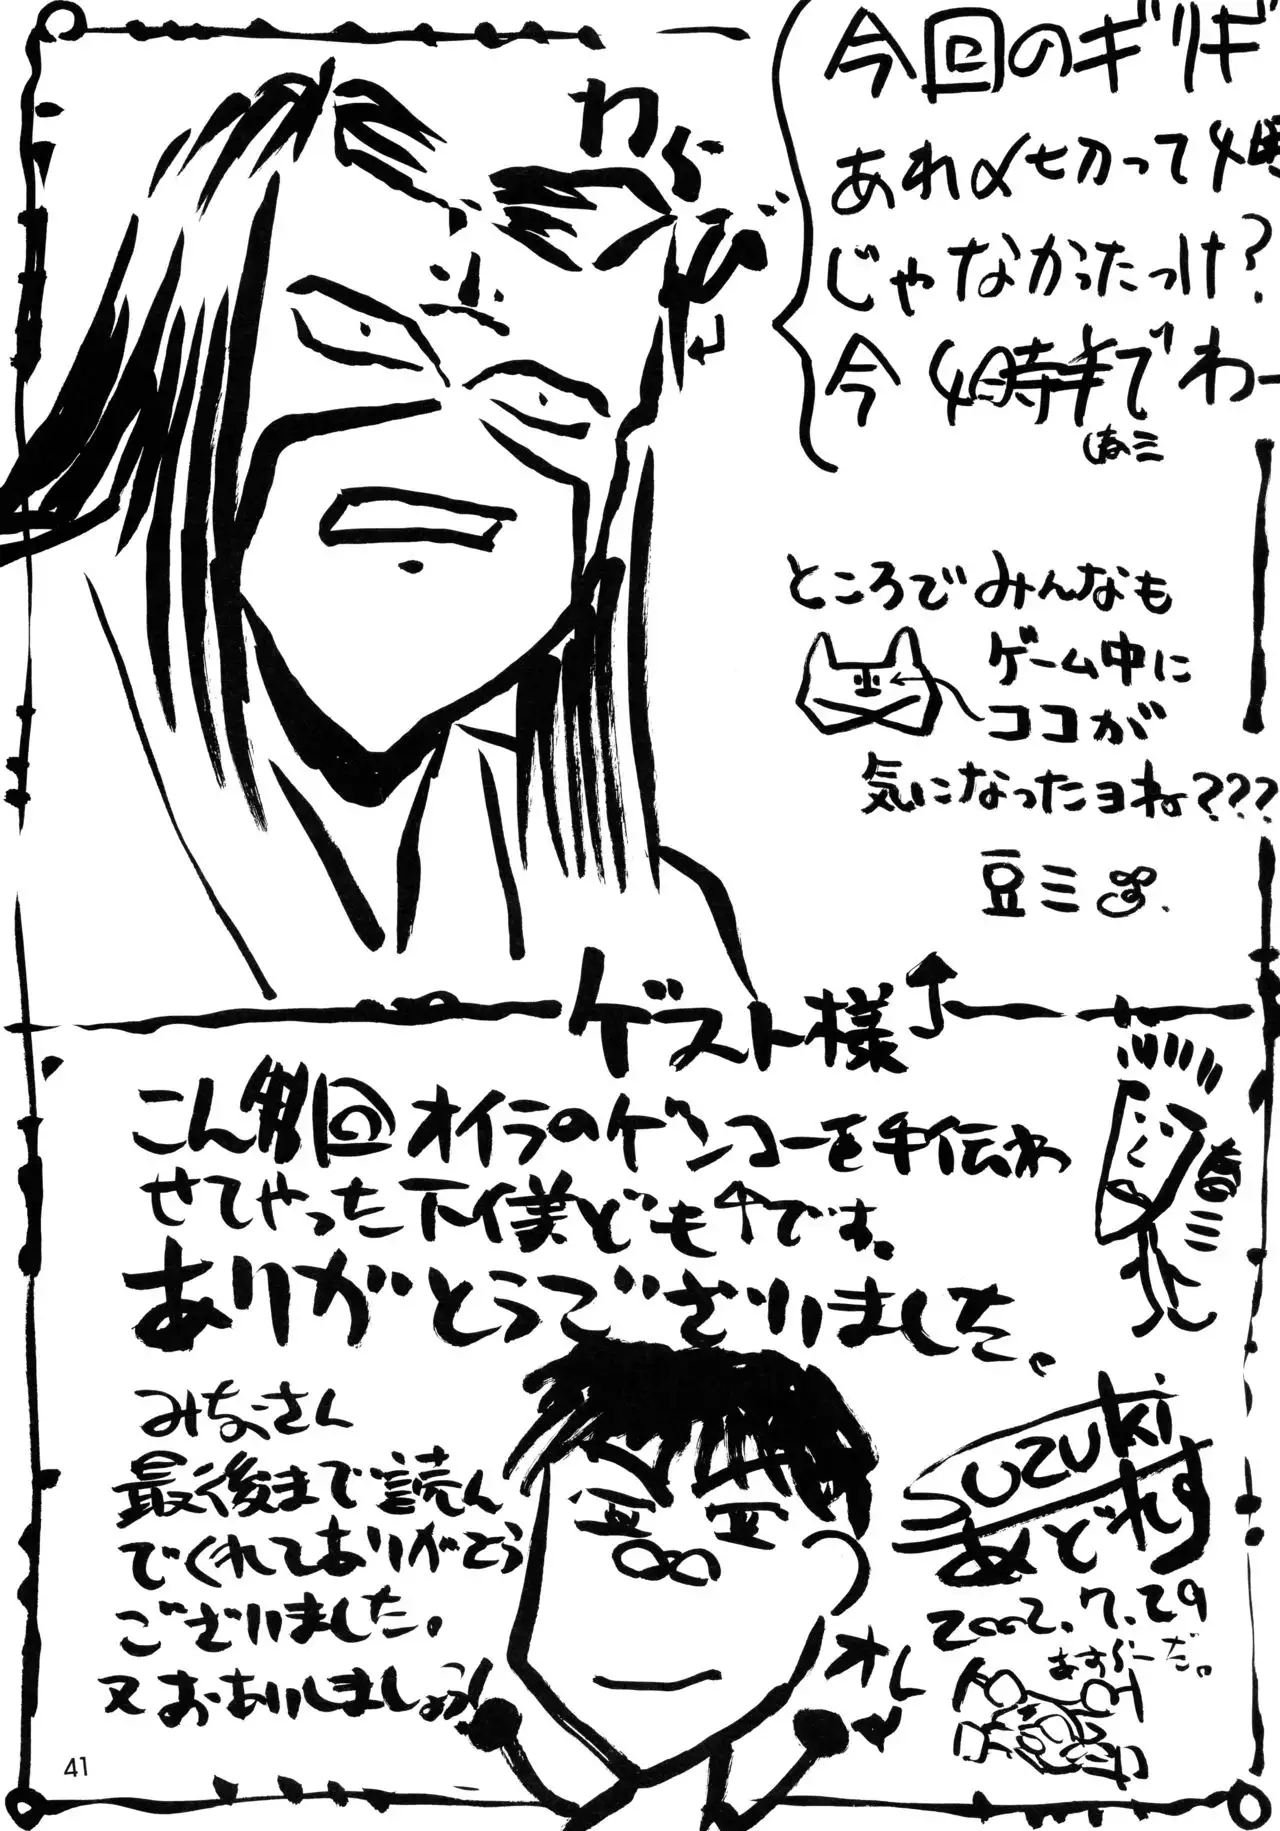 わらび
今回のギリギ
あれ〆切って4時
じゃなかったっけ?
今4時半でわー
ところでみんなも
ゲーム中に
ココが
気になったヨね???
豆ミ
ゲスト様
こん回オイラのゲンコーを手伝わ
せてやった下イ美ども↑です。
ありがとうございました。
みなさん
最後まで読ん
でくれてありがとう
ございました。
又おあいしましょう!
オレ
SUZUKI
あどれす
2002.7.29
41